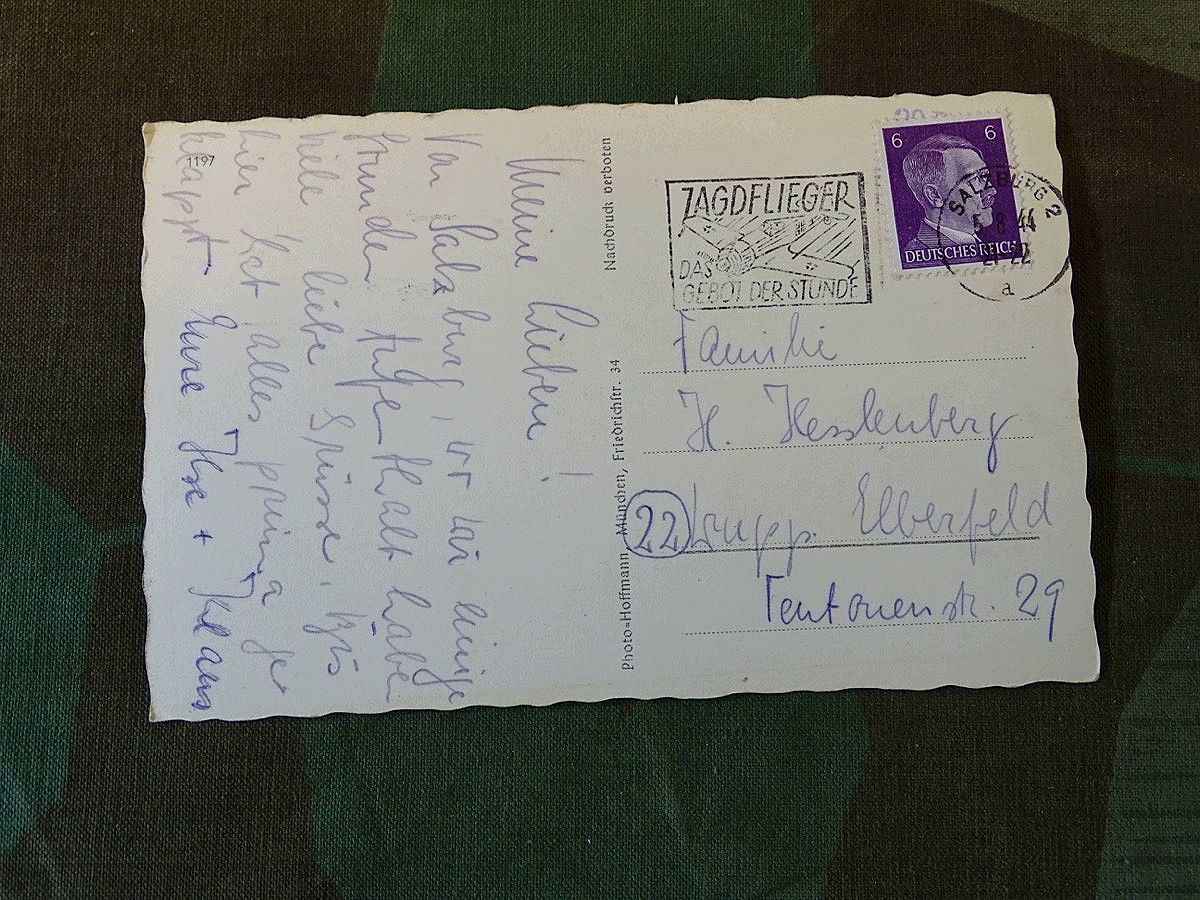 1197
Meine Lieben!
Von Salzburg, wo wir einige
Stunden Aufenthalt haben
viele liebe Grüsse. Bis
hier hat alles prima ge
klappt. Eure Ilse + Klaus
Nachdruck verboten
Photo=Hoffmann, München, Friedrichstr. 34
JAGDFLIEGER
DAS
GEBOT DER STUNDE
6 6
DEUTSCHES REICH
SALZBURG 2
5 8 44
21-22
a
Familie
H. Hesslenberg
22 Wupp. Elberfeld
Teutonenstr. 29